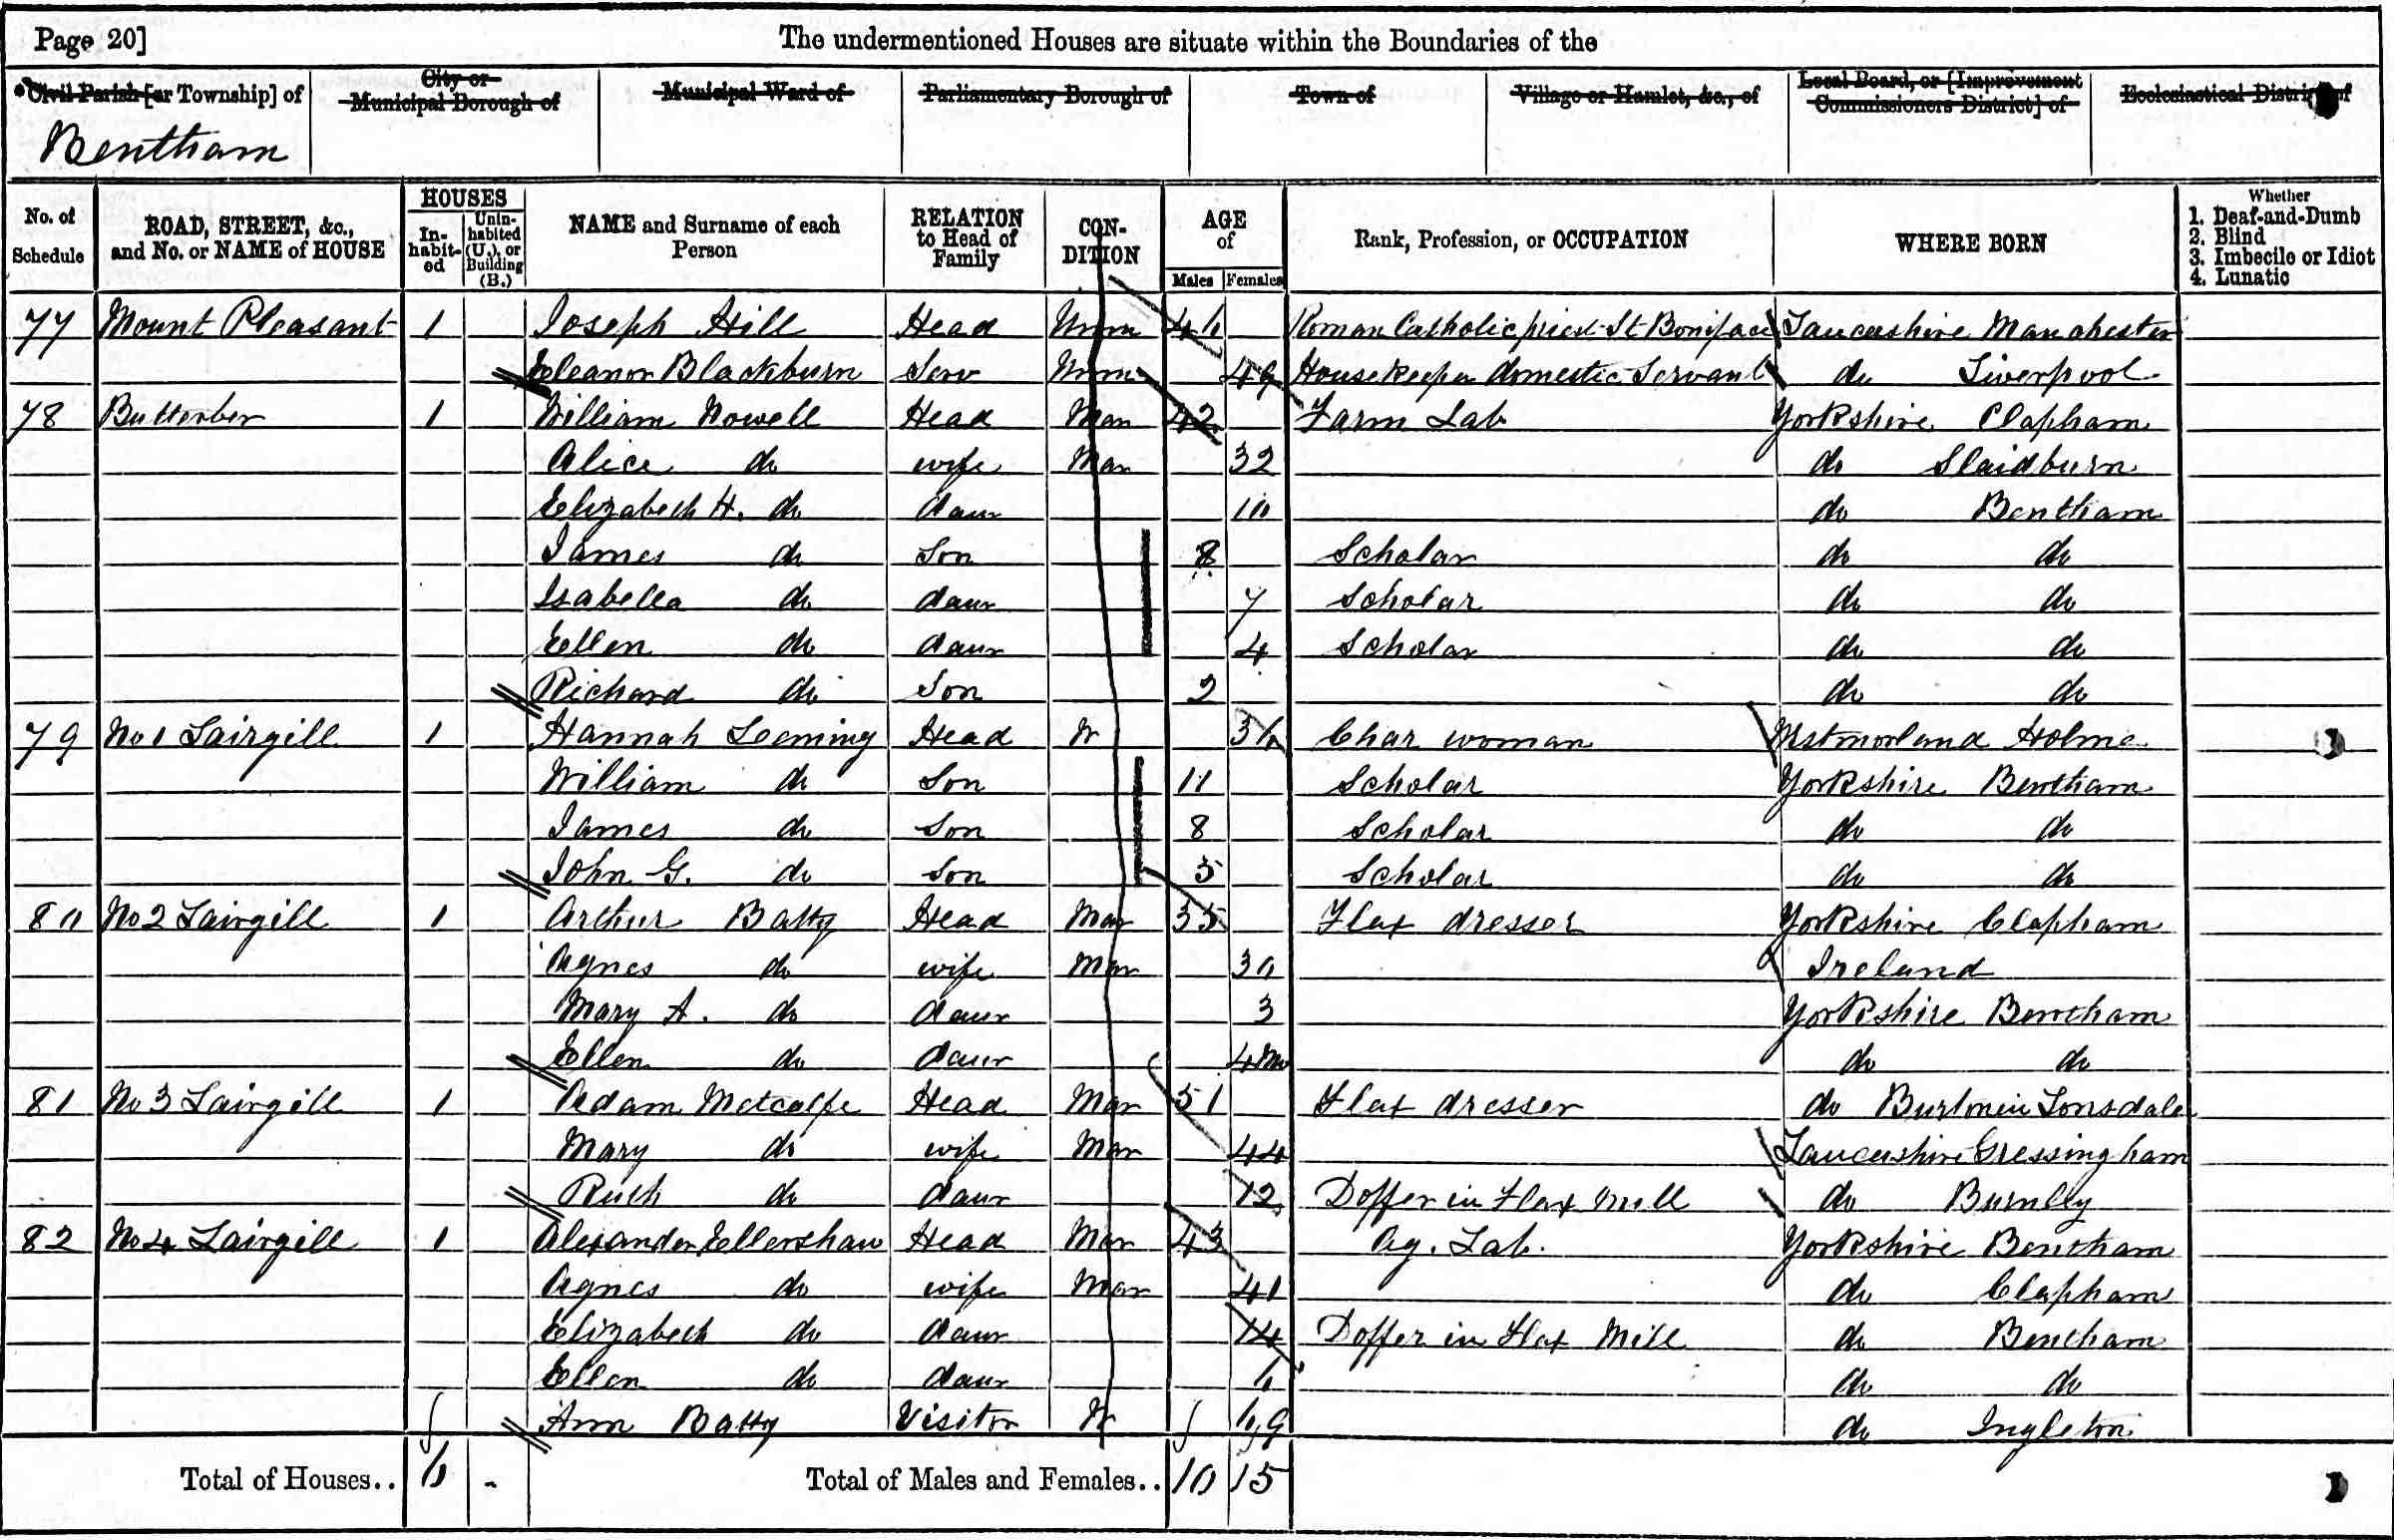 Page 20] The undermentioned Houses are situate within the Boundaries of the
Civil Parish [or Township] of City or Municipal Borough of Municipal Ward of Parliamentary Borough of Town of Village or Hamlet, &c., of Local Board, or [Improvement Commissioners District] of Ecclesiastical District of
Bentham
No. of Schedule ROAD, STREET, &c., and No. or NAME of HOUSE HOUSES In-habit-ed Unin-habited (U.), or Building (B.) NAME and Surname of each Person RELATION to Head of Family CON-DITION AGE of Males Females Rank, Profession, or OCCUPATION WHERE BORN Whether 1. Deaf-and-Dumb 2. Blind 3. Imbecile or Idiot 4. Lunatic
77 Mount Pleasant 1 Joseph Hill Head Unm 46 Roman Catholic priest St Boniface Lancashire Manchester
Eleanor Blackburn Serv Unm 49 Housekeeper domestic Servant do Liverpool
78 Butterber 1 William Nowell Head Mar 42 Farm Lab Yorkshire Clapham
Alice do wife Mar 32 do Slaidburn
Elizabeth H. do daur 10 do Bentham
James do Son 8 Scholar do do
Isabella do daur 7 Scholar do do
Ellen do daur 4 Scholar do do
Richard do Son 2 do do
79 No 1 Lairgill 1 Hannah Leeming Head W 36 Char woman Westmorland Holme
William do Son 11 Scholar Yorkshire Bentham
James do Son 8 Scholar do do
John G. do Son 5 Scholar do do
80 No 2 Lairgill 1 Arthur Batty Head Mar 35 Flax dresser Yorkshire Clapham
Agnes do wife Mar 30 Ireland
Mary A. do daur 3 Yorkshire Bentham
Ellen do daur 4 Mo do do
81 No 3 Lairgill 1 Adam Metcalfe Head Mar 51 Flax dresser do Burton in Lonsdale
Mary do wife Mar 44 Lancashire Gressingham
Ruth do daur 12 Doffer in Flax Mill do Burnley
82 No 4 Lairgill 1 Alexander Ellershaw Head Mar 43 Ag. Lab. Yorkshire Bentham
Agnes do wife Mar 41 do Clapham
Elizabeth do daur 14 Doffer in Flax Mill do Bentham
Ellen do daur 6 do do
Ann Batty Visitor W 69 do Ingleton
Total of Houses.. 6 - Total of Males and Females.. 10 15